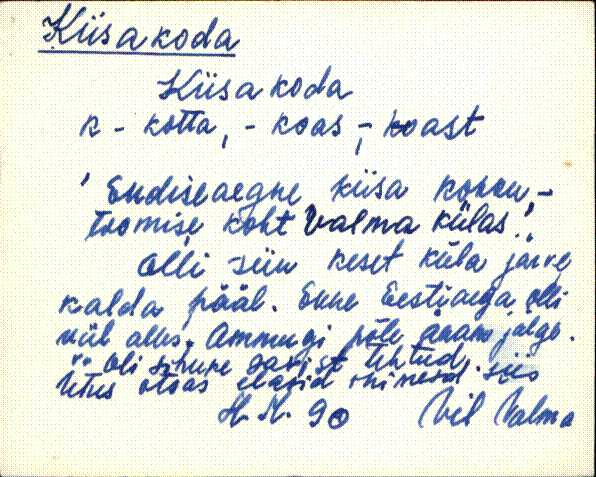 Kiisa koda
Kiisa koda
k - kotta, - koas -, koast
' Endiseaegne kiisa konnu,-
tsomise koht Valma külas.'
Olli siin keset küla järve
kalda pääl. Enne Eestiaega olli
viil alles. Ammugi põle änam jälge.
Oli sihuke savist tehtud.
ütus otsas elasid inimesed siis
H. K. 90 Vil Valma